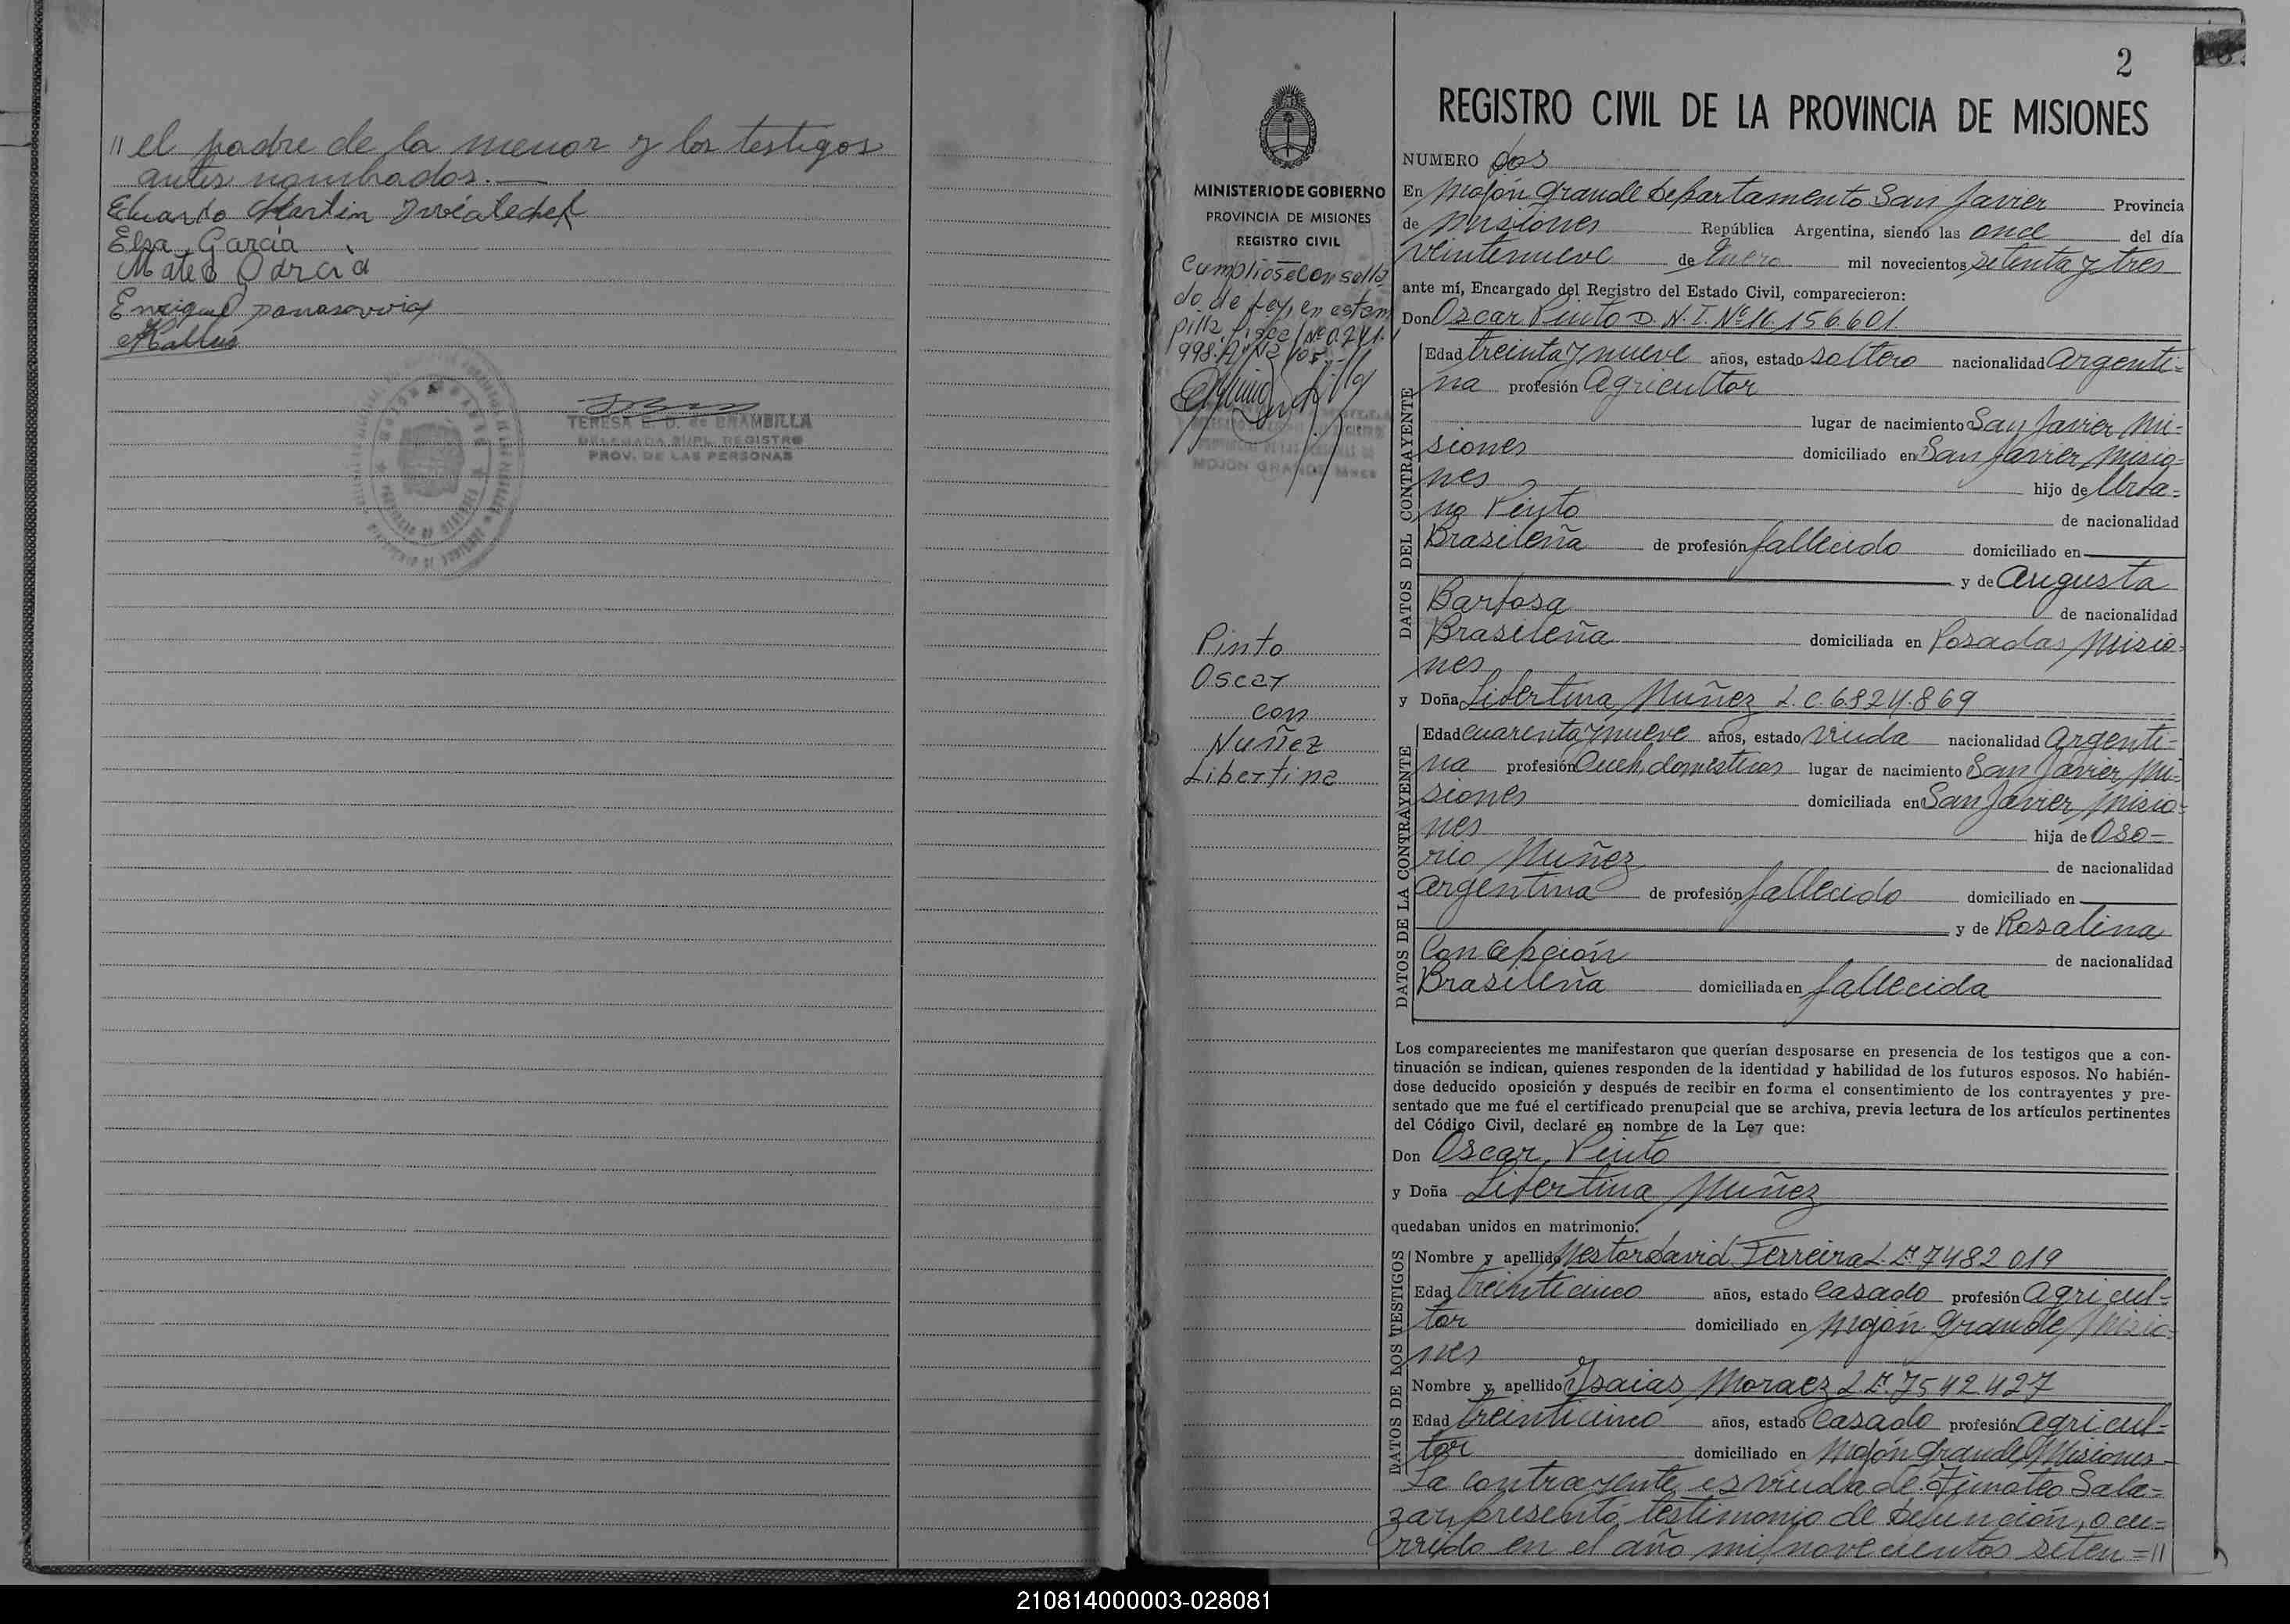 // el padre de la menor y los testigos
antes nombrados.-
Eduardo Martin
Elsa Garcia
Mateo Garcia
Enrique
TERESA E. D. de BRAMBILLA
DELEGADA SUPL. REGISTRO
PROV. DE LAS PERSONAS
MINISTERIO DE GOBIERNO
PROVINCIA DE MISIONES
REGISTRO CIVIL
Cumplióse con sella
do de Ley, en estam
pilla fiscal Nº 0.241.
MOJON GRANDE
Pinto
Oscar
con
Nuñez
Libertina
2
REGISTRO CIVIL DE LA PROVINCIA DE MISIONES
NUMERO dos
En Mojón Grande Departamento San Javier Provincia
de Misiones República Argentina, siendo las once del día
veintenueve de Enero mil novecientos setenta y tres
ante mí, Encargado del Registro del Estado Civil, comparecieron:
Don Oscar Pinto D.N.I. Nº 10.156.601.
DATOS DEL CONTRAYENTE
Edad treinta y nueve años, estado soltero nacionalidad Argenti=
na profesión Agricultor
lugar de nacimiento San Javier Mi=
siones domiciliado en San Javier, Misio=
nes hijo de Urba=
no Pinto de nacionalidad
Brasileña de profesión fallecido domiciliado en
y de Augusta
Barbosa de nacionalidad
Brasileña domiciliada en Posadas, Misio=
nes
y Doña Libertina Nuñez L.C. 6.824.869
DATOS DE LA CONTRAYENTE
Edad cuarenta y nueve años, estado viuda nacionalidad Argenti=
na profesión Queh. domésticos lugar de nacimiento San Javier, Mi=
siones domiciliada en San Javier, Misio=
nes hija de Oso=
rio Nuñez de nacionalidad
Argentina de profesión fallecido domiciliado en
y de Rosalina
Concepción de nacionalidad
Brasileña domiciliada en fallecida
Los comparecientes me manifestaron que querían desposarse en presencia de los testigos que a con-
tinuación se indican, quienes responden de la identidad y habilidad de los futuros esposos. No habién-
dose deducido oposición y después de recibir en forma el consentimiento de los contrayentes y pre-
sentado que me fué el certificado prenupcial que se archiva, previa lectura de los artículos pertinentes
del Código Civil, declaré en nombre de la Ley que:
Don Oscar Pinto
y Doña Libertina Nuñez
quedaban unidos en matrimonio.
DATOS DE LOS TESTIGOS
Nombre y apellido Nestor David Ferreira L.E. 7482019
Edad treinticinco años, estado casado profesión Agricul=
tor domiciliado en Mojón Grande, Misio=
nes
Nombre y apellido Ysaias Moraez L.E. 7542427
Edad treinticinco años, estado casado profesión Agricul=
tor domiciliado en Mojón Grande, Misiones
La contrayente es viuda de Timoteo Sala=
zar, presentó testimonio de defunción, ocu=
rrido en el año mil novecientos seten=//
210814000003-028081